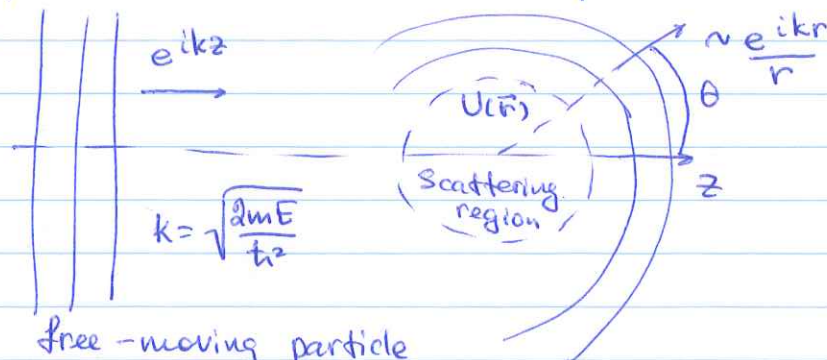 e^{ikz}
~ \frac{e^{ikr}}{r}
θ
U(\vec{r})
z
Scattering
region
k = \sqrt{\frac{2mE}{ħ^2}}
free-moving particle